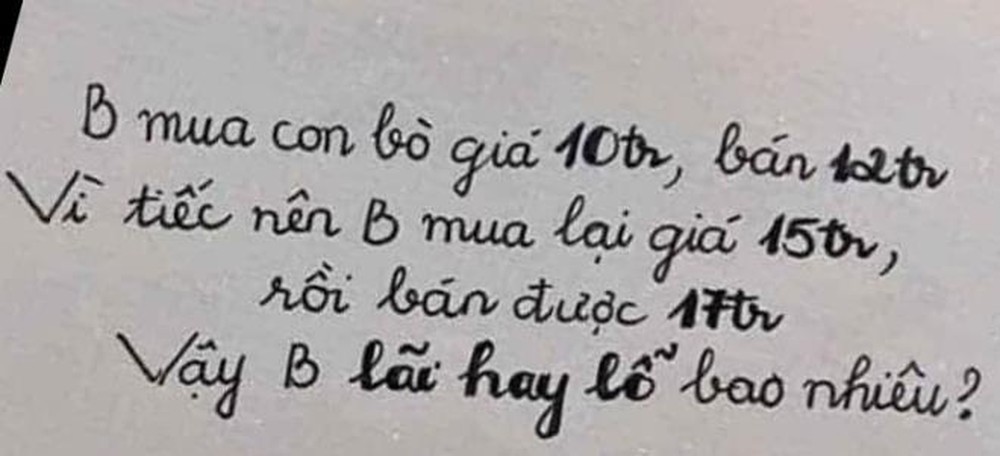 B mua con bò giá 10tr, bán 12tr
Vì tiếc nên B mua lại giá 15tr,
rồi bán được 17tr
Vậy B lãi hay lỗ bao nhiêu?